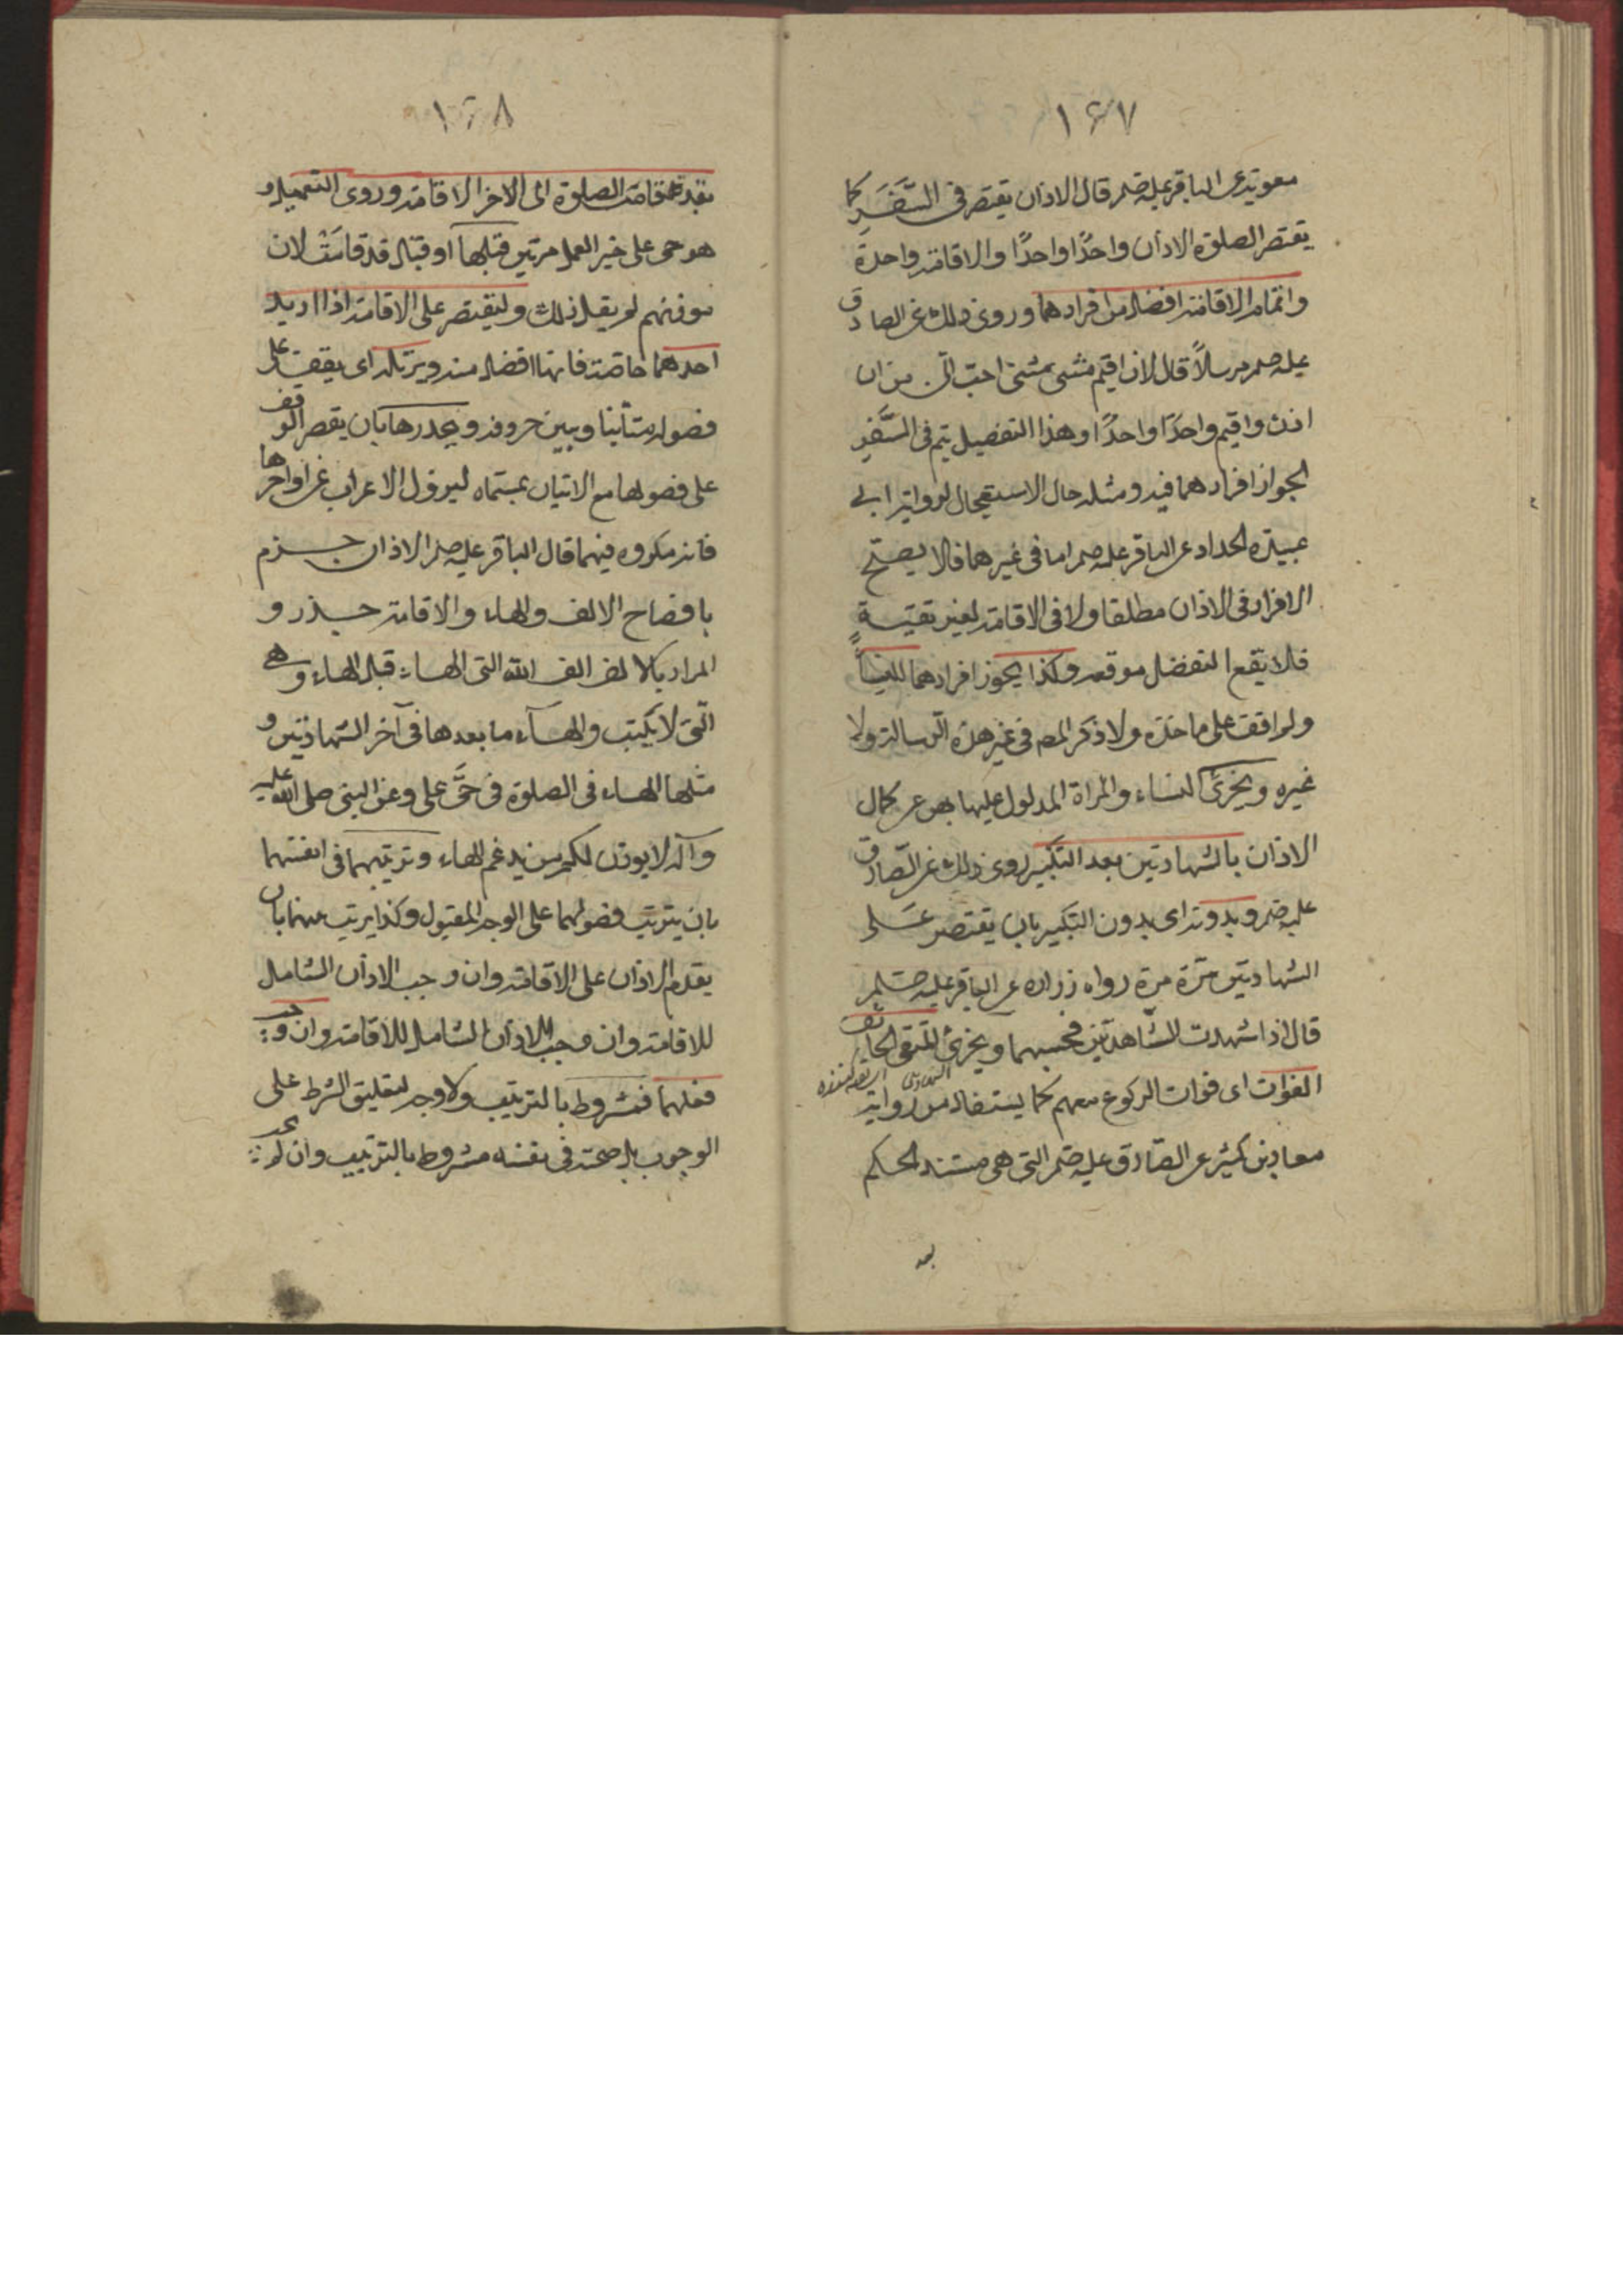 ١٤٧
معوية عن الباقر عليه صلم قال الاذان يقتصر في السَّفَرِ كما
يقتصر الصلوة الاذان واحدًا واحدًا والاقامة واحدة
واتمام الاقامة افضل من افرادهما وروى ذلك عن الصادق
عليه صلم مرسلاً قال لان اقيم مثنى مثنى احبّ الىّ من ان
اذن واقيم واحدًا واحدًا وهذا التفصيل يتم في السَّفَرِ
لجواز افرادهما فيه ومثله حال الاستعجال لرواية ابى
عبيدة الحداد عن الباقر عليه صلم اما في غيرهما فلا يصحّ
الافراد في الاذان مطلقا ولا في الاقامة لغير تقيّةٍ
فلا يقع التفضل موقعه وكذا يجوز افرادهما للنسآء
ولم اقف على ماخذه ولا ذكر المص في غير هذه الرسالة ولا
غيره ويجزئ النساء والمراة المدلول عليها بهن عن كمال
الاذان بالشهادتين بعد التكبير روى ذلك عن الصّادق
عليه صلم وبدونه اى بدون التكبير بان يقتصر على
الشهادتين مرّة مرة رواه زراره عن الباقر عليه صلم
قال اذا شهدت الشّاهدتين فحسبهما ويجزئ للمتقى الخائف
الشهادتين
الفوات اى فوات الركوع معهم كما يستفاد من رواية
معاذ بن كثير عن الصّادق عليه صلم التى هى مستند الحكم
بعد
١٤٨
بعد قد قامت الصلوة الى الاخر الاقامة وروى التعميل و
هو حى على خير العمل مرتين قبلها او قبال قد قامَتْ لان
موفنهم لم يقل ذلك وليقتصر على الاقامة اذا اريد
احدهما خاصة فانها افضل منه ويرتله اى يقف على
فصوله متأنيا ويبين حروفه ويحدرها بان يقصر الوقف
على فصولها مع الاتيان بمسمّاه ليزول الاعراب عن اواخرها
فانه مكروه فيهما قال الباقر عليه صلم الاذان جزم
بافصاح الالف والهاء والاقامة حذر و
المراد بالالف الف الله التى الهاء قبل الهاء وهى
الّتى لا يكتب والهآء ما بعدها في آخر الشهادتين و
مثلها الهاء في الصلوة في حَىَّ على وعن النبى صلى الله عليه
وآله لا يوذن لكم من يدغم الهاء وترتيبهما في انفسهما
بان يترتب فصولهما على الوجه المقبول وكذا يرتب بينهما بان
يقدم الاذان على الاقامة وان وجب الاذان الشامل
للاقامة وان وجب الاذان الشامل للاقامة وان وجب
ففعلهما فمشروط بالترتيب ولا وجه لتعليق الشرط على
الوجوب بل صحته في نفسه مشروط بالترتيب وان لم يجد